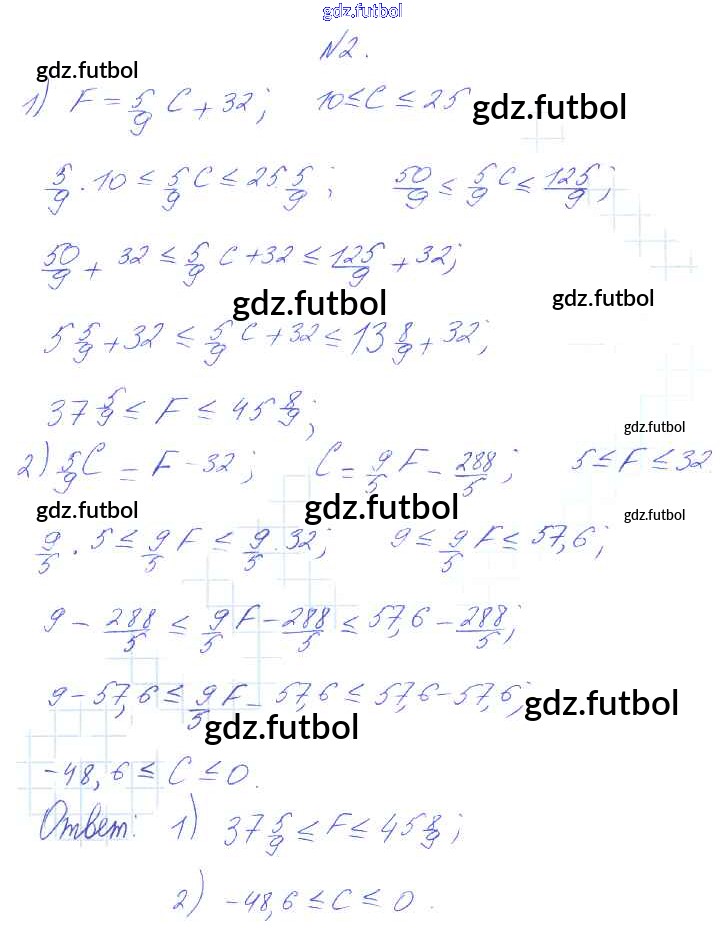 gdz.futbol
№2.
gdz.futbol
1) F = 5/9 C + 32; 10 ≤ C ≤ 25 gdz.futbol
5/9 · 10 ≤ 5/9 C ≤ 25 5/9; 50/9 ≤ 5/9 C ≤ 125/9;
50/9 + 32 ≤ 5/9 C + 32 ≤ 125/9 + 32;
gdz.futbol gdz.futbol
5 5/9 + 32 ≤ 5/9 C + 32 ≤ 13 8/9 + 32;
37 5/9 ≤ F ≤ 45 8/9;
gdz.futbol
2) 5/9 C = F - 32; C = 9/5 F - 288/5; 5 ≤ F ≤ 32
gdz.futbol gdz.futbol gdz.futbol
9/5 · 5 ≤ 9/5 F ≤ 9/5 · 32; 9 ≤ 9/5 F ≤ 57,6;
9 - 288/5 ≤ 9/5 F - 288/5 ≤ 57,6 - 288/5;
9 - 57,6 ≤ 9/5 F - 57,6 ≤ 57,6 - 57,6; gdz.futbol
gdz.futbol
-48,6 ≤ C ≤ 0.
Ответ: 1) 37 5/9 ≤ F ≤ 45 8/9;
2) -48,6 ≤ C ≤ 0.